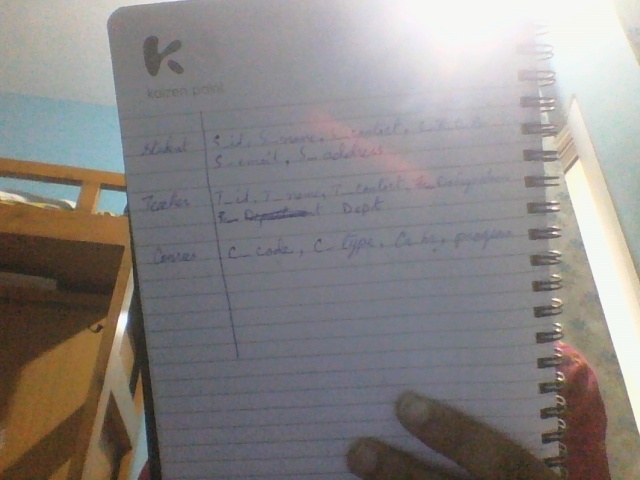 K
kaizen point
Student S_id, S_name, S_contact,
S_email, S_address
Teacher T_id, T_name, T_contact,
Dept
Courses C_code, C_type, Cr.hr, program